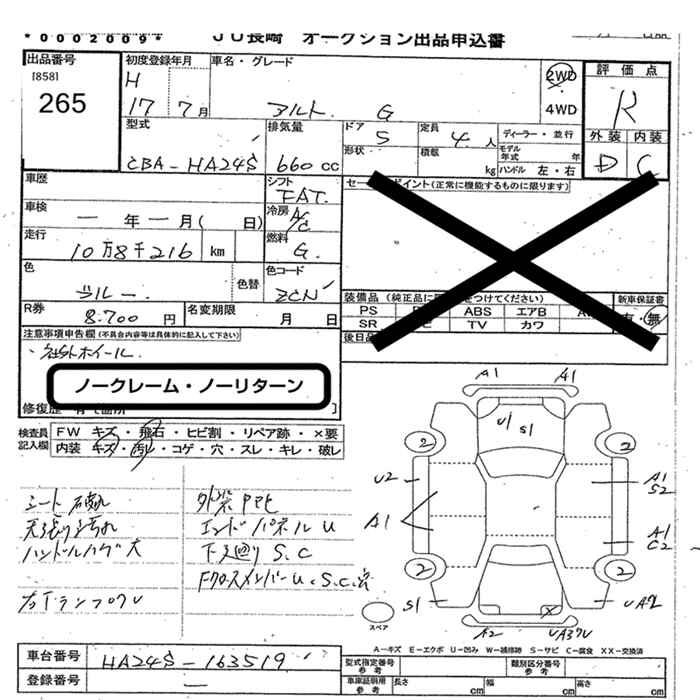 *0002009*
JU長崎 オークション出品申込書
出品番号
[858]
265
初度登録年月
H
17 7月
車名・グレード
アルト G
2WD
4WD
評価点
R
外装 内装
D C
型式
CBA-HA24S
排気量
660cc
ドア
5
定員
4人
ディーラー・並行
形状
積載
kg
モデル年式 年
ハンドル 左・右
車歴
シフト
FAT
セールスポイント(正常に機能するものに限ります)
車検
一年一月( 日)
冷房
A/C
走行
10万8千216 km
燃料
G
色
ブルー
色替
色コード
ZCN
R券
8.700円
名変期限
月 日
装備品 (純正品に
をつけてください)
新車保証書
有・無
PS
ABS
エアB
SR
TV
カワ
後日品
注意事項申告欄(不具合内容等は具体的に記入して下さい)
・社外ホイール
ノークレーム・ノーリターン
修復歴
検査員記入欄
FW キズ・飛石・ヒビ割・リペア跡・×要
内装 キズ・汚レ・コゲ・穴・スレ・キレ・破レ
シート破れ
天張り汚れ
ハンドルハゲ大
エンドパネルU
下廻りS.C
A1 A1
U1
S1
2 2
U2
A1
S2
A1
A1
C2
2 2
S1
スペア
A2
A-キズ E-エクボ U-凹み W-補修跡 S-サビ C-腐食 XX-交換済
車台番号
HA24S-163519
登録番号
型式指定番号
参考
類別区分番号
参考
車庫証明用
参考
長さ cm
幅 cm
高さ cm